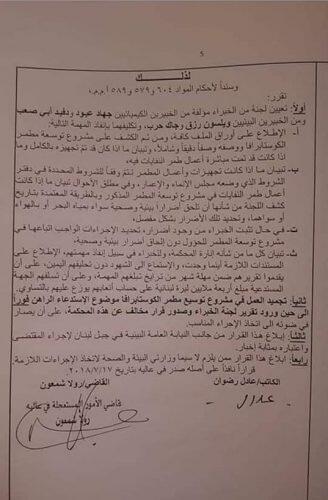 5
لذلك
وسنداً لأحكام المواد ٦٠٤ و٥٧٩ و٥٨٩ أ.م.م.
تقرر:
أولاً: تعيين لجنة من الخبراء مؤلفة من الخبيرين الكيميائيين جهاد عبود ودفيد أبي صعب
ومن الخبيرين البيئيين ويلسون رزق وجاك حرب، وتكليفهما بإنفاذ المهمة التالية:
أ- الإطلاع على أوراق الملف كافة، ومن ثم الكشف على مشروع توسعة مطمر
الكوستابرافا ووصفه وصفاً دقيقاً وشاملاً، وتبيان ما اذا كان قد تم تجهيزه بالكامل وما
اذا كانت قد تمت مباشرة أعمال طمر النفايات فيه،
ب- تبيان ما إذا كانت تجهيزات وأعمال المطمر تتم وفقاً للشروط المحددة في دفتر
الشروط الذي وضعه مجلس الإنماء والإعمار، وفي مطلق الأحوال تبيان ما اذا كانت
أعمال طمر النفايات في مشروع توسعة المطمر المذكور وبالطريقة المعتمدة بتاريخ
كشف اللجنة من شأنها أن تلحق أضراراً بيئية وصحية سواء بمياه البحر أو بالهواء
أو سواهما، وتحديد تلك الأضرار بشكل مفصل،
ت- في حال تثبت الخبراء من وجود أضرار، تحديد الإجراءات الواجب اتباعها في
مشروع توسعة المطمر للحؤول دون إلحاق أضرار بيئية وصحية،
ث- تبيان كل ما من شأنه إنارة المحكمة، وللخبراء في سبيل إنفاذ مهمتهم، الإطلاع على
المستندات اللازمة أينما وجدت، والإستماع الى الشهود دون تحليفهم اليمين، على أن
يقدموا تقريرهم ضمن مهلة شهر من تاريخ تبلغهم المهمة، وعلى أن تسلفهم الجهة
المستدعية مبلغ أربعة ملايين ليرة لبنانية على حساب أتعابهم يوزع عليهم بالتساوي.
ثانياً: تجميد العمل في مشروع توسيع مطمر الكوستابرافا موضوع الاستدعاء الراهن فوراً
الى حين ورود تقرير لجنة الخبراء وصدور قرار مخالف عن هذه المحكمة، على أن يصار
في ضوئه الى اتخاذ الإجراء المناسب.
ثالثاً: إبلاغ هذا القرار من جانب النيابة العامة البيئية في جبل لبنان لإجراء المقتضى
واعتباره بمثابة إخبار.
رابعاً: ابلاغ هذا القرار ممن يلزم لا سيما وزارتي البيئة والصحة لاتخاذ الإجراءات اللازمة
قراراً نافذاً على أصله صدر في عاليه بتاريخ ٢٠١٨/٧/١٧
الكاتب/عادل رضوان
القاضي/رولا شمعون
قاضي الأمور المستعجلة في عاليه
رولا شمعون